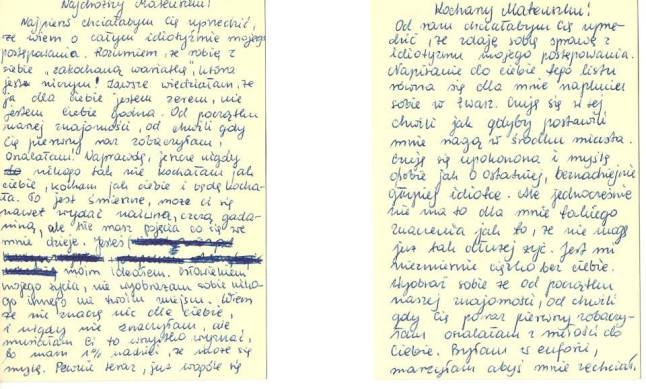 Najdroższy Mateuszu!
Najpierw chciałabym Cię uprzedzić,
że wiem o całym idiotyzmie mojego
postępowania. Rozumiem, że robię z
siebie "zakochaną wariatkę", która
jest niczym! Zawsze wiedziałam, że
ja dla Ciebie jestem zerem, nie
jestem Ciebie godna. Od początku
naszej znajomości, od chwili gdy
Cię pierwszy raz zobaczyłam,
oszalałam! Naprawdę, jeszcze nigdy
nikogo tak nie kochałam jak
Ciebie, kocham jak Ciebie i będę kocha-
ła. To jest śmieszne, może ci się
nawet wydać naiwną, czczą gada-
niną, ale nie masz pojęcia co się we
mnie dzieje. Jesteś
moim ideałem. Istnieniem
mojego życia, nie wyobrażam sobie niko-
go innego na twoim miejscu. Wiem
że nie znaczę nic dla Ciebie,
i nigdy nie znaczyłam, ale
musiałam Ci to wszystko wyznać,
bo mam 1% nadziei, że może się
mylę. Pewnie teraz, już wogóle się
Kochany Mateuszu!
Od razu chciałabym Cię uprze-
dzić, że zdaję sobię sprawę z
idiotyzmu mojego postępowania.
Napisanie do Ciebie tego listu
równa się dla mnie napluciem
sobie w twarz. Czuję się w tej
chwili jak gdyby postawili
mnie nagą w środku miasta.
Czuję się upokorzona i myślę
o sobie jak o ostatniej, beznadziejnie
głupiej idiotce. Ale jednocześnie
nie ma to dla mnie takiego
znaczenia jak to, że nie mogę
już tak dłużej żyć. Jest mi
niezmiernie ciężko bez Ciebie.
Wyobraź sobie że od początku
naszej znajomości, od chwili
gdy Cię poraz pierwszy zobaczy-
łam oszalałam z miłości do
Ciebie. Byłam w euforii,
marzyłam abyś mnie zechciał.